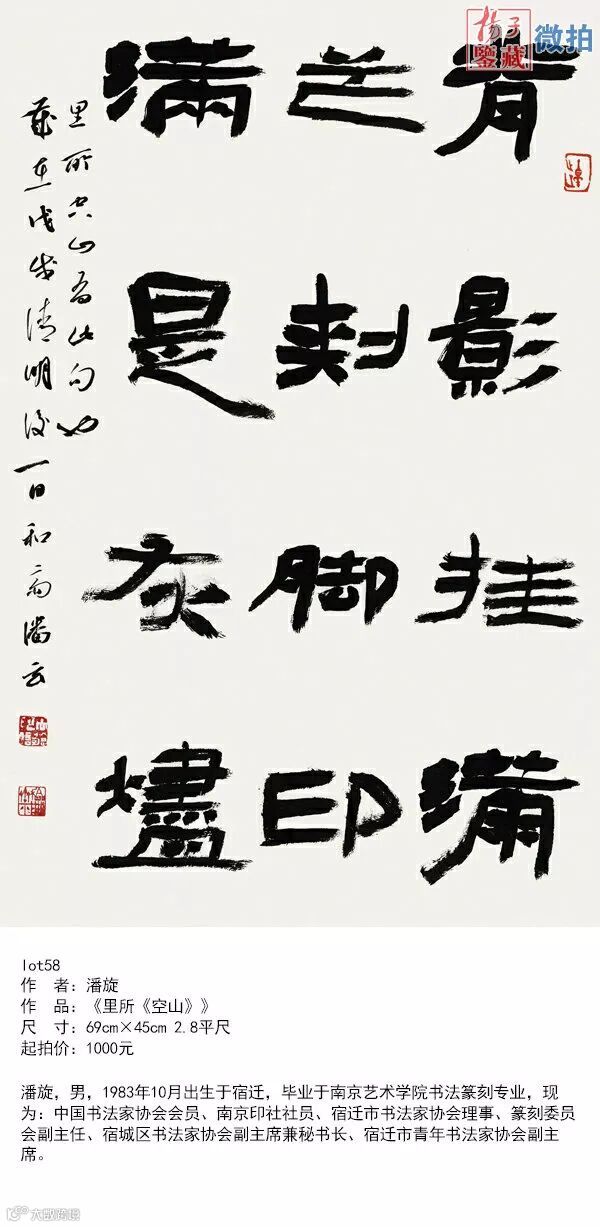 扬子
鑒藏
微拍
背影挂满
芒刺脚印
满是灰燼
里所空山有此句也
歲在戊戌清明後一日和斋潘
lot58
作　者：潘旋
作　品：《里所《空山》》
尺　寸：69cm×45cm 2.8平尺
起拍价：1000元
潘旋，男，1983年10月出生于宿迁，毕业于南京艺术学院书法篆刻专业，现
为：中国书法家协会会员、南京印社社员、宿迁市书法家协会理事、篆刻委员
会副主任、宿城区书法家协会副主席兼秘书长、宿迁市青年书法家协会副主
席。
大数跨境